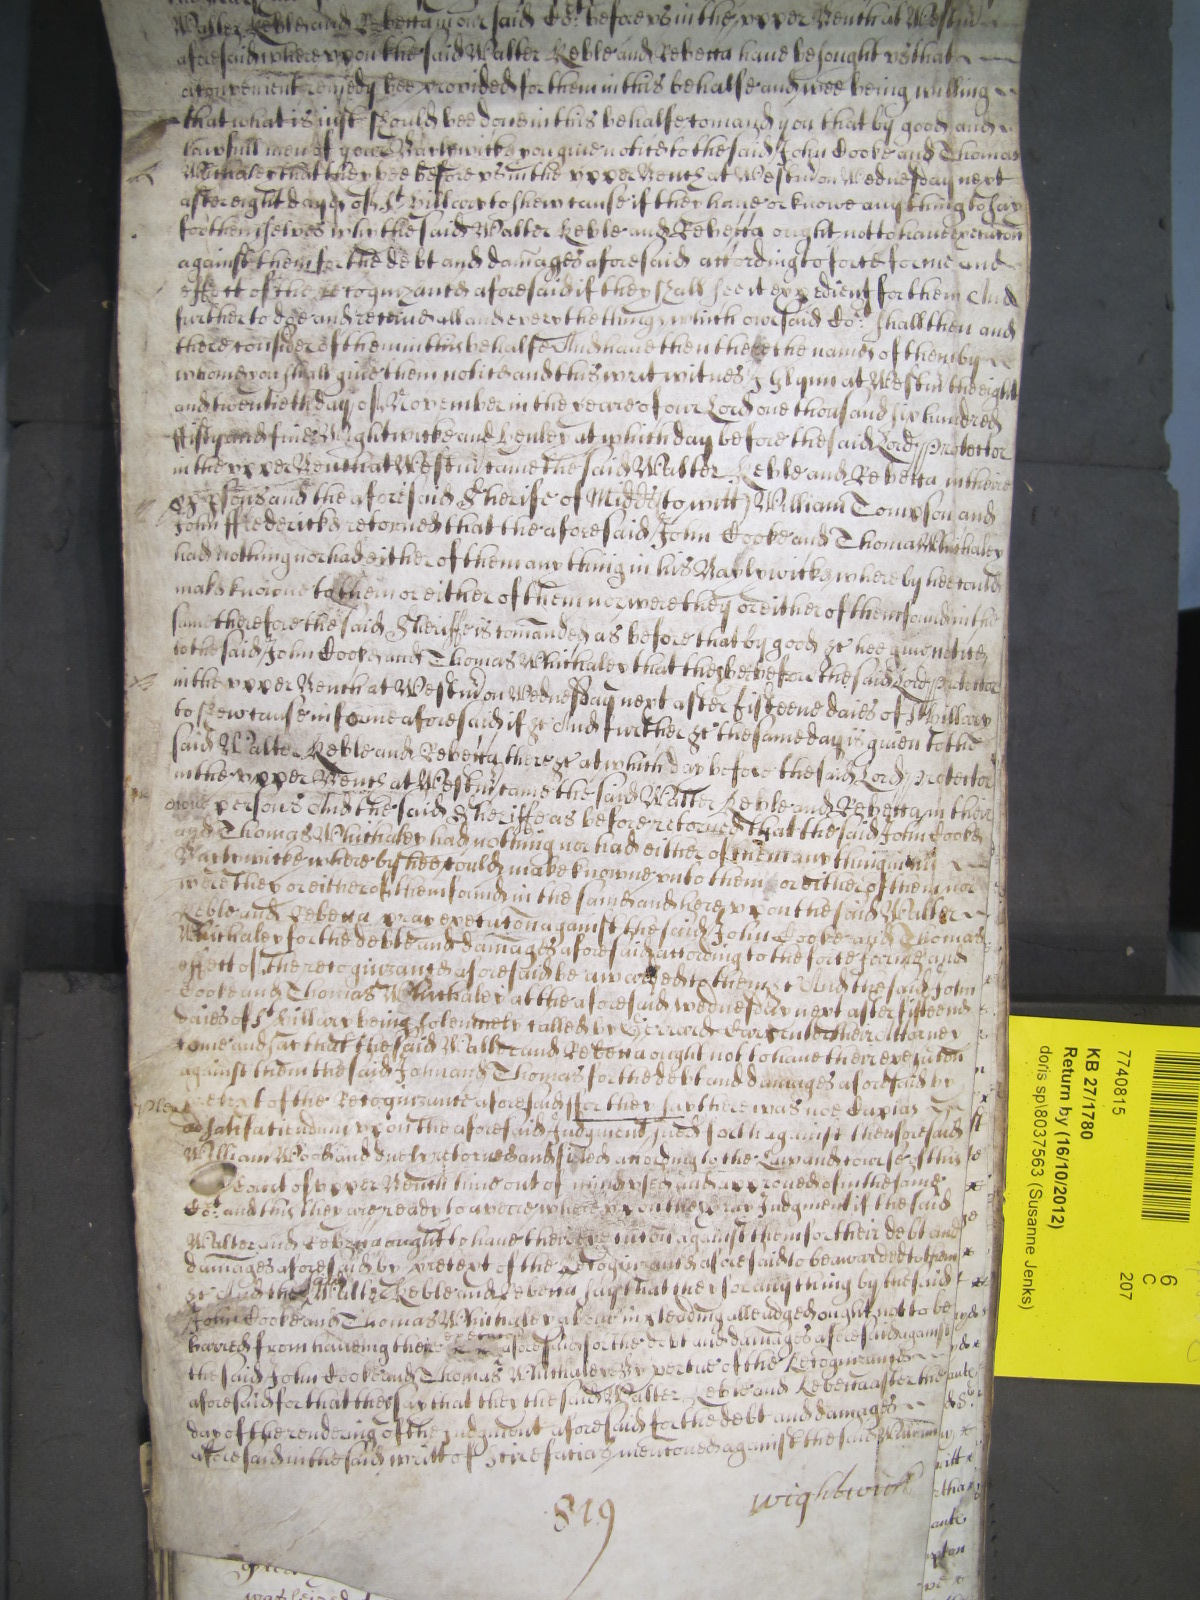 Walter Keble and Rebecca in our said Cot. before us in the upper Bench at Westm
aforesaid whereupon the said Walter Keble and Rebecca have besought us that
a convenient remedy bee provided for them in this behalfe and wee being willing
that what is iust should bee done in this behalfe comand you that by good and
lawfull men of your Baylywicke you give notice to the said John Cooke and Thomas
Whithaley that they bee before us in the upper Bench at Westm on Wednesday next
after eight dayes of St Hillary to shew cause if they have or knowe any thing to say
for themselves why the said Walter Keble and Rebecca ought not to have execucon
against them for the debt and damages aforesaid according to force forme and
effect of the recognizance aforesaid if they shall see it expedient for them And
further to doe and receive all and every the things which our said Cot. shall then and
there consider of them in this behalfe And have then there the names of them by
whome you shall give them notice and this writ witnes J Glynn at Westm the eight
and twentieth day of November in the yeare of our Lord one thousand six hundred
ffifty and five Wightwicke and Henley at which day before the said Lord Protector
in the upper Bench at Westm came the said Walter Keble and Rebecca in theire
persons and the aforesaid Sherife of Midds (to witt) William Tompson and
John ffredericke retorned that the aforesaid John Cooke and Thomas Whithaley
had nothing nor had either of them any thing in his Baylywicke whereby hee could
make knowne to them or either of them nor were they or either of them found in the
same therefore the said Sheriffe is comanded as before that by good &c hee give notice
to the said John Cooke and Thomas Whithaley that they bee before the said Lord Protector
in the upper Bench at Westm on Wednesday next after fifteene daies of St Hillary
to shew cause in forme aforesaid if &c And further &c the same day is given to the
said Walter Keble and Rebecca there &c at which day before the said Lord Protector
in the upper Bench at Westm came the said Walter Keble and Rebecca in their
owne persons And the said Sheriffe as before retorned that the said John Cooke
and Thomas Whithaley had nothing nor had either of them any thing in his
Baylywicke whereby hee could make knowne unto them or either of them nor
were they or either of them found in the same and hereupon the said Walter
Keble and Rebecca pray execution against the said John Cooke and Thomas
Whithaley for the debt and damages aforesaid according to the force forme and
effect of the recognizance aforesaid be awarded to them &c And the said John
Cooke and Thomas Whithaley at the aforesaid wednesday next after fifteene
daies of St Hillary being solemnely called by Gerrard Carpenter their Attorney
come and say that the said Walter and Rebecca ought not to have their execution
against them the said John and Thomas for the debt and damages aforesaid by
pretext of the Recognizance aforesaid for they say there was noe Capias
ad satisfaciendum upon the aforesaid Judgment sued forth against the aforesaid
William Wood and duely retorned and filed according to the Law and course of this
Court of upper Bench time out of mind used and approved of in the same
Cot. and this they are ready to averre whereupon they pray Judgment if the said
Walter and Rebecca ought to have their execution against them for their debt and
damages aforesaid by pretext of the Recognizance aforesaid to be awarded to them
&c And the said Walter Keble and Rebecca say that they for any thing by the said
John Cooke and Thomas Whithaley above in pleading alleadged ought not to be
barred from haveing there execucon aforesaid for the debt and damages aforesaid against
the said John Cooke and Thomas Whithaley by vertue of the Recognizance
aforesaid for that they say that they the said Walter Keble and Rebecca after the
day of the rendering of the Judgment aforesaid for the debt and damages
aforesaid in the said writt of Scire facias menconed against the said William
819
Wightwick
7740815
KB 27/1780
Return by (16/10/2012)
doris sp\8037563 (Susanne Jenks)
6
C
207